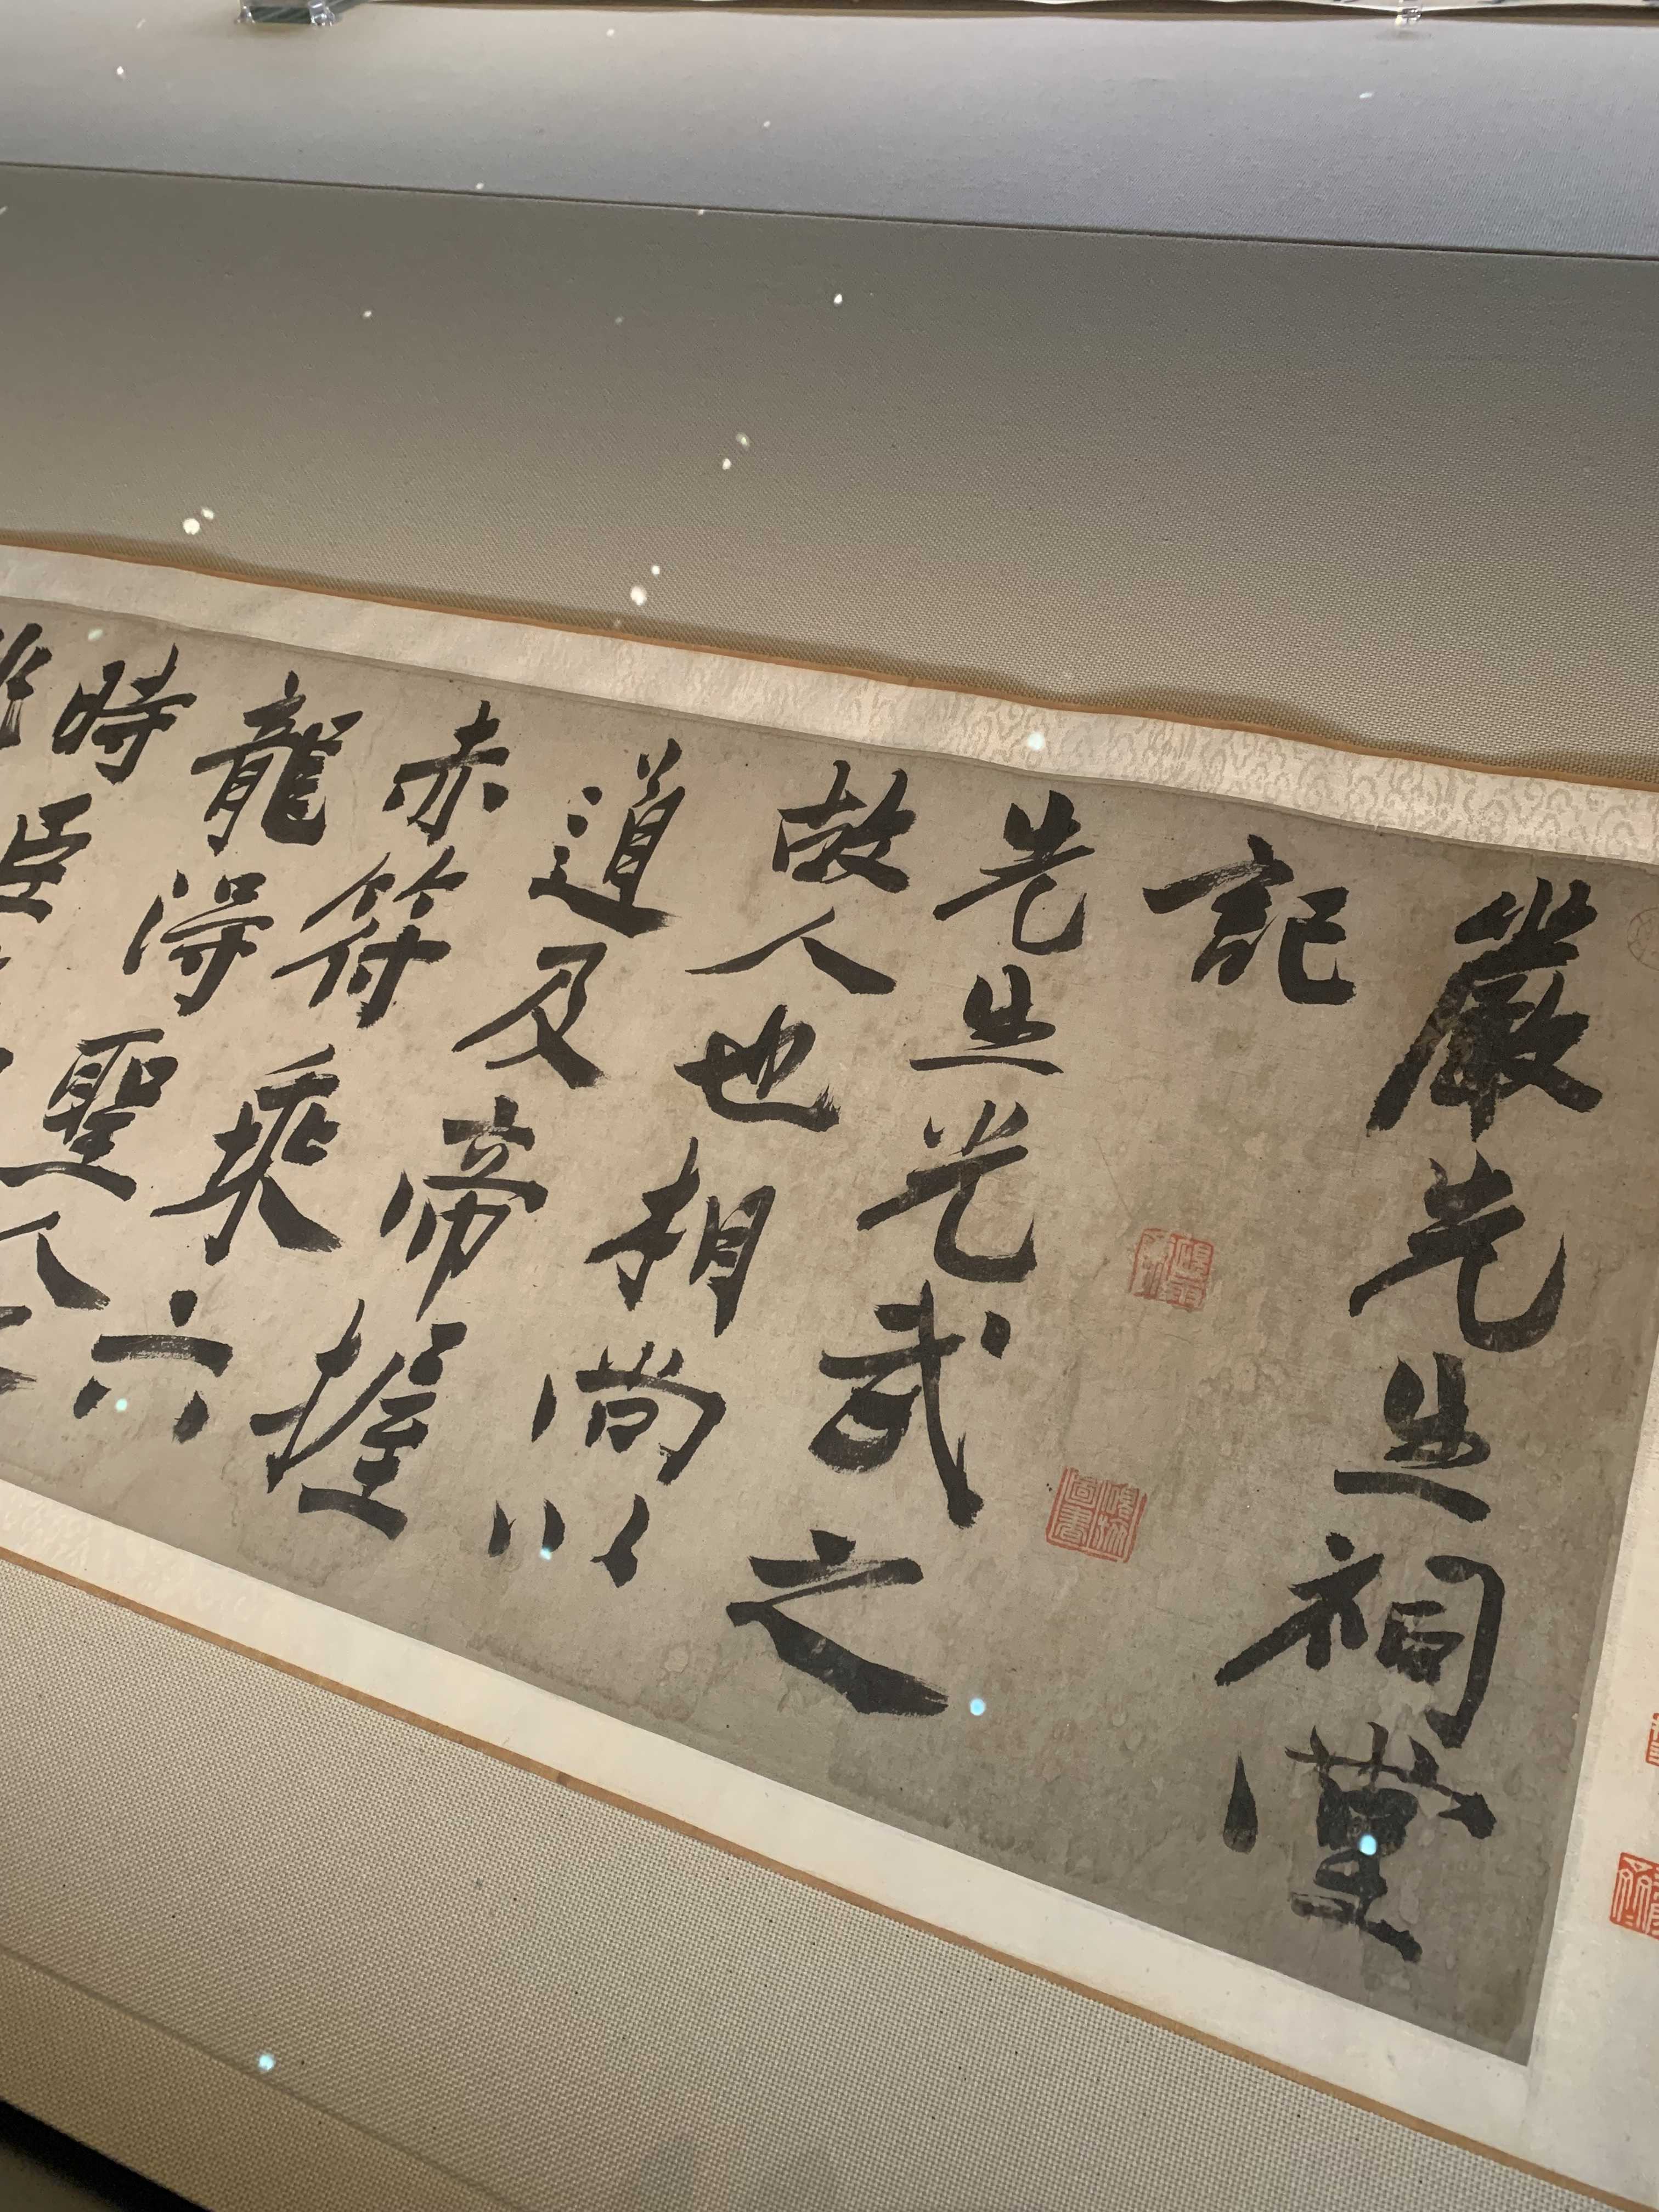 嚴先生祠堂
記
先生光武之
故人也相尚以
道及帝握
赤符乘六
龍得聖人
時臣